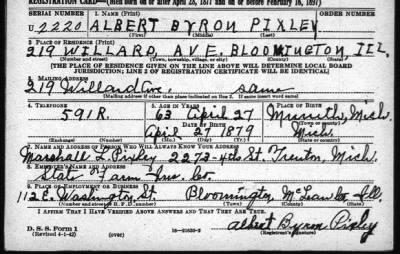 REGISTRATION CARD—(Men born on or after April 28, 1877 and on or before February 16, 1897)
SERIAL NUMBER 1. NAME (Print)
U 2220 ALBERT BYRON PIXLEY
(First) (Middle) (Last)
2. PLACE OF RESIDENCE (Print)
219 WILLARD AVE. BLOOMINGTON ILL.
(Number and street) (Town, township, village, or city) (County) (State)
[THE PLACE OF RESIDENCE GIVEN ON THE LINE ABOVE WILL DETERMINE LOCAL BOARD
JURISDICTION; LINE 2 OF REGISTRATION CERTIFICATE WILL BE IDENTICAL]
3. MAILING ADDRESS
219 Willard Ave. same
(Mailing address if other than place indicated on line 2. If same insert word same)
4. TELEPHONE 5. AGE IN YEARS 6. PLACE OF BIRTH
591R. 63 April 27 Munith, Mich.
DATE OF BIRTH (Town or county)
April 27 1879 Mich.
(Exchange) (Number) (Mo.) (Day) (Yr.) (State or country)
7. NAME AND ADDRESS OF PERSON WHO WILL ALWAYS KNOW YOUR ADDRESS
Marshall L. Pixley 2273-4th St. Trenton, Mich.
8. EMPLOYER'S NAME AND ADDRESS
State Farm Ins. Co.
9. PLACE OF EMPLOYMENT OR BUSINESS
112 E. Washington St. Bloomington McLean Co. Ill.
(Number and street or R. F. D. number) (Town) (County) (State)
I AFFIRM THAT I HAVE VERIFIED ABOVE ANSWERS AND THAT THEY ARE TRUE.
D. S. S. Form 1
(Revised 4-1-42) (over) Albert Byron Pixley
(Registrant's signature)